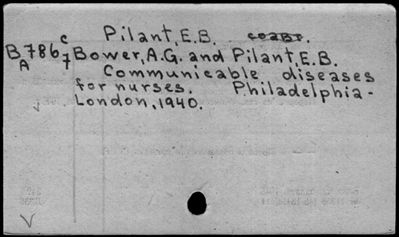 Pilant, E.B. coabt.
B786c7 Bower, A.G. and Pilant, E.B.
A
Communicable diseases
for nurses. Philadelphia-
London, 1940.